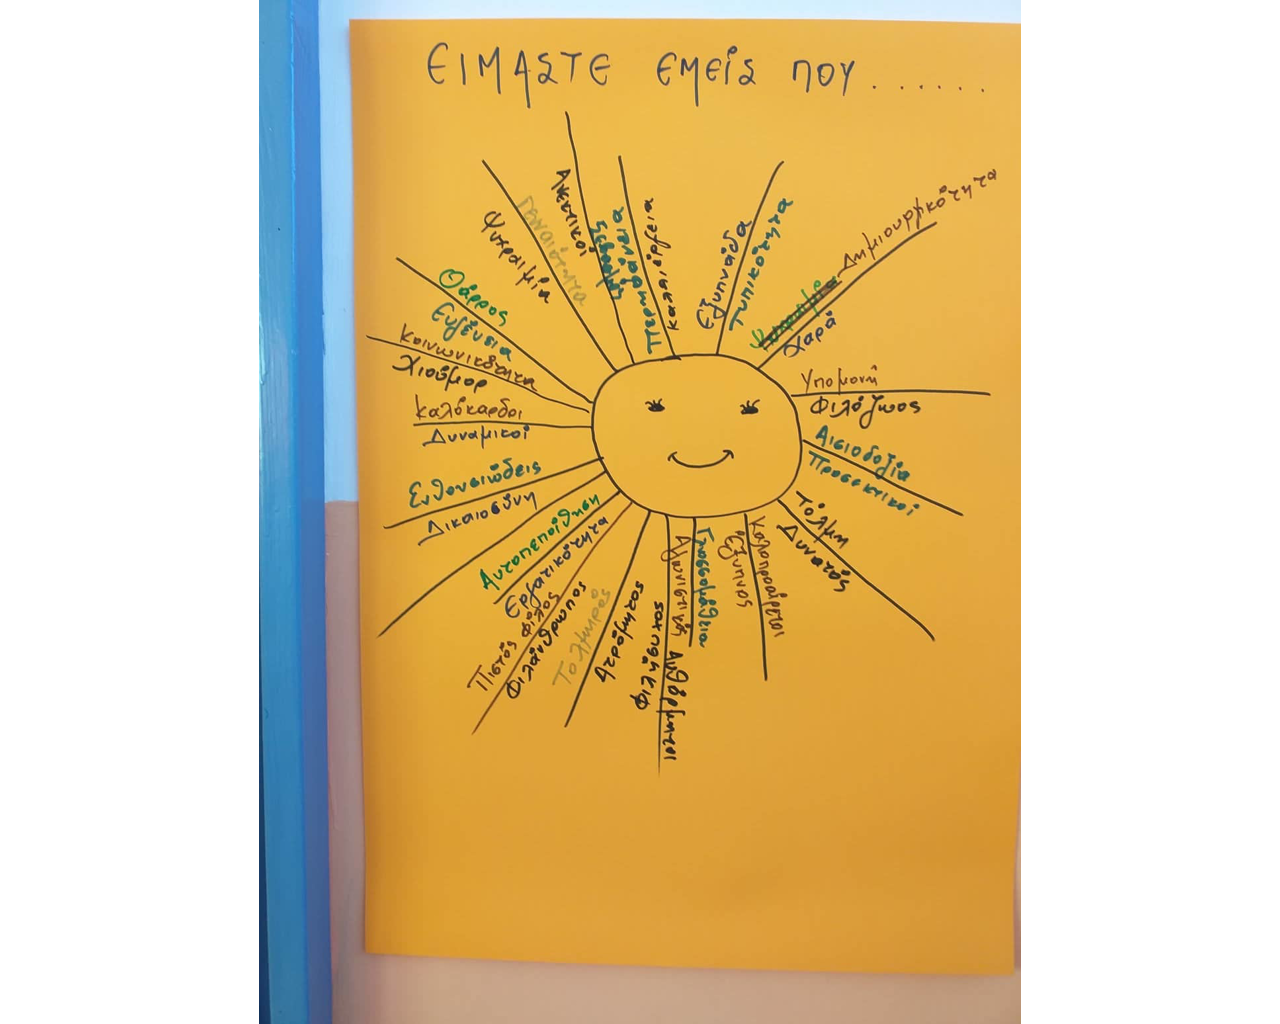 ΕΙΜΑΣΤΕ ΕΜΕΙΣ ΠΟΥ.......
Ψυχραιμία
Γενναιότητα
Ανεκτικοί
Σεβασμός
Περηφάνεια
Εξυπνάδα
Τυπικότητα
Δημιουργικότητα
Χαρά
Υπομονή
Φιλόζωος
Αισιοδοξία
Προσεκτικοί
Τόλμη
Δυνατός
Καλοπροαίρετοι
Εξυπνος
Γλωσσομάθεια
Αγωνιστικός
Αυθόρμητοι
Φιλήκοος
Ατρόμητος
Τολμηρός
Φιλάνθρωπος
Πιστός φίλος
Εργατικότητα
Αυτοπεποίθηση
Δικαιοσύνη
Ενθουσιώδεις
Δυναμικοί
Καλόκαρδοι
Χιούμορ
Κοινωνικότητα
Ευγένεια
Θάρρος